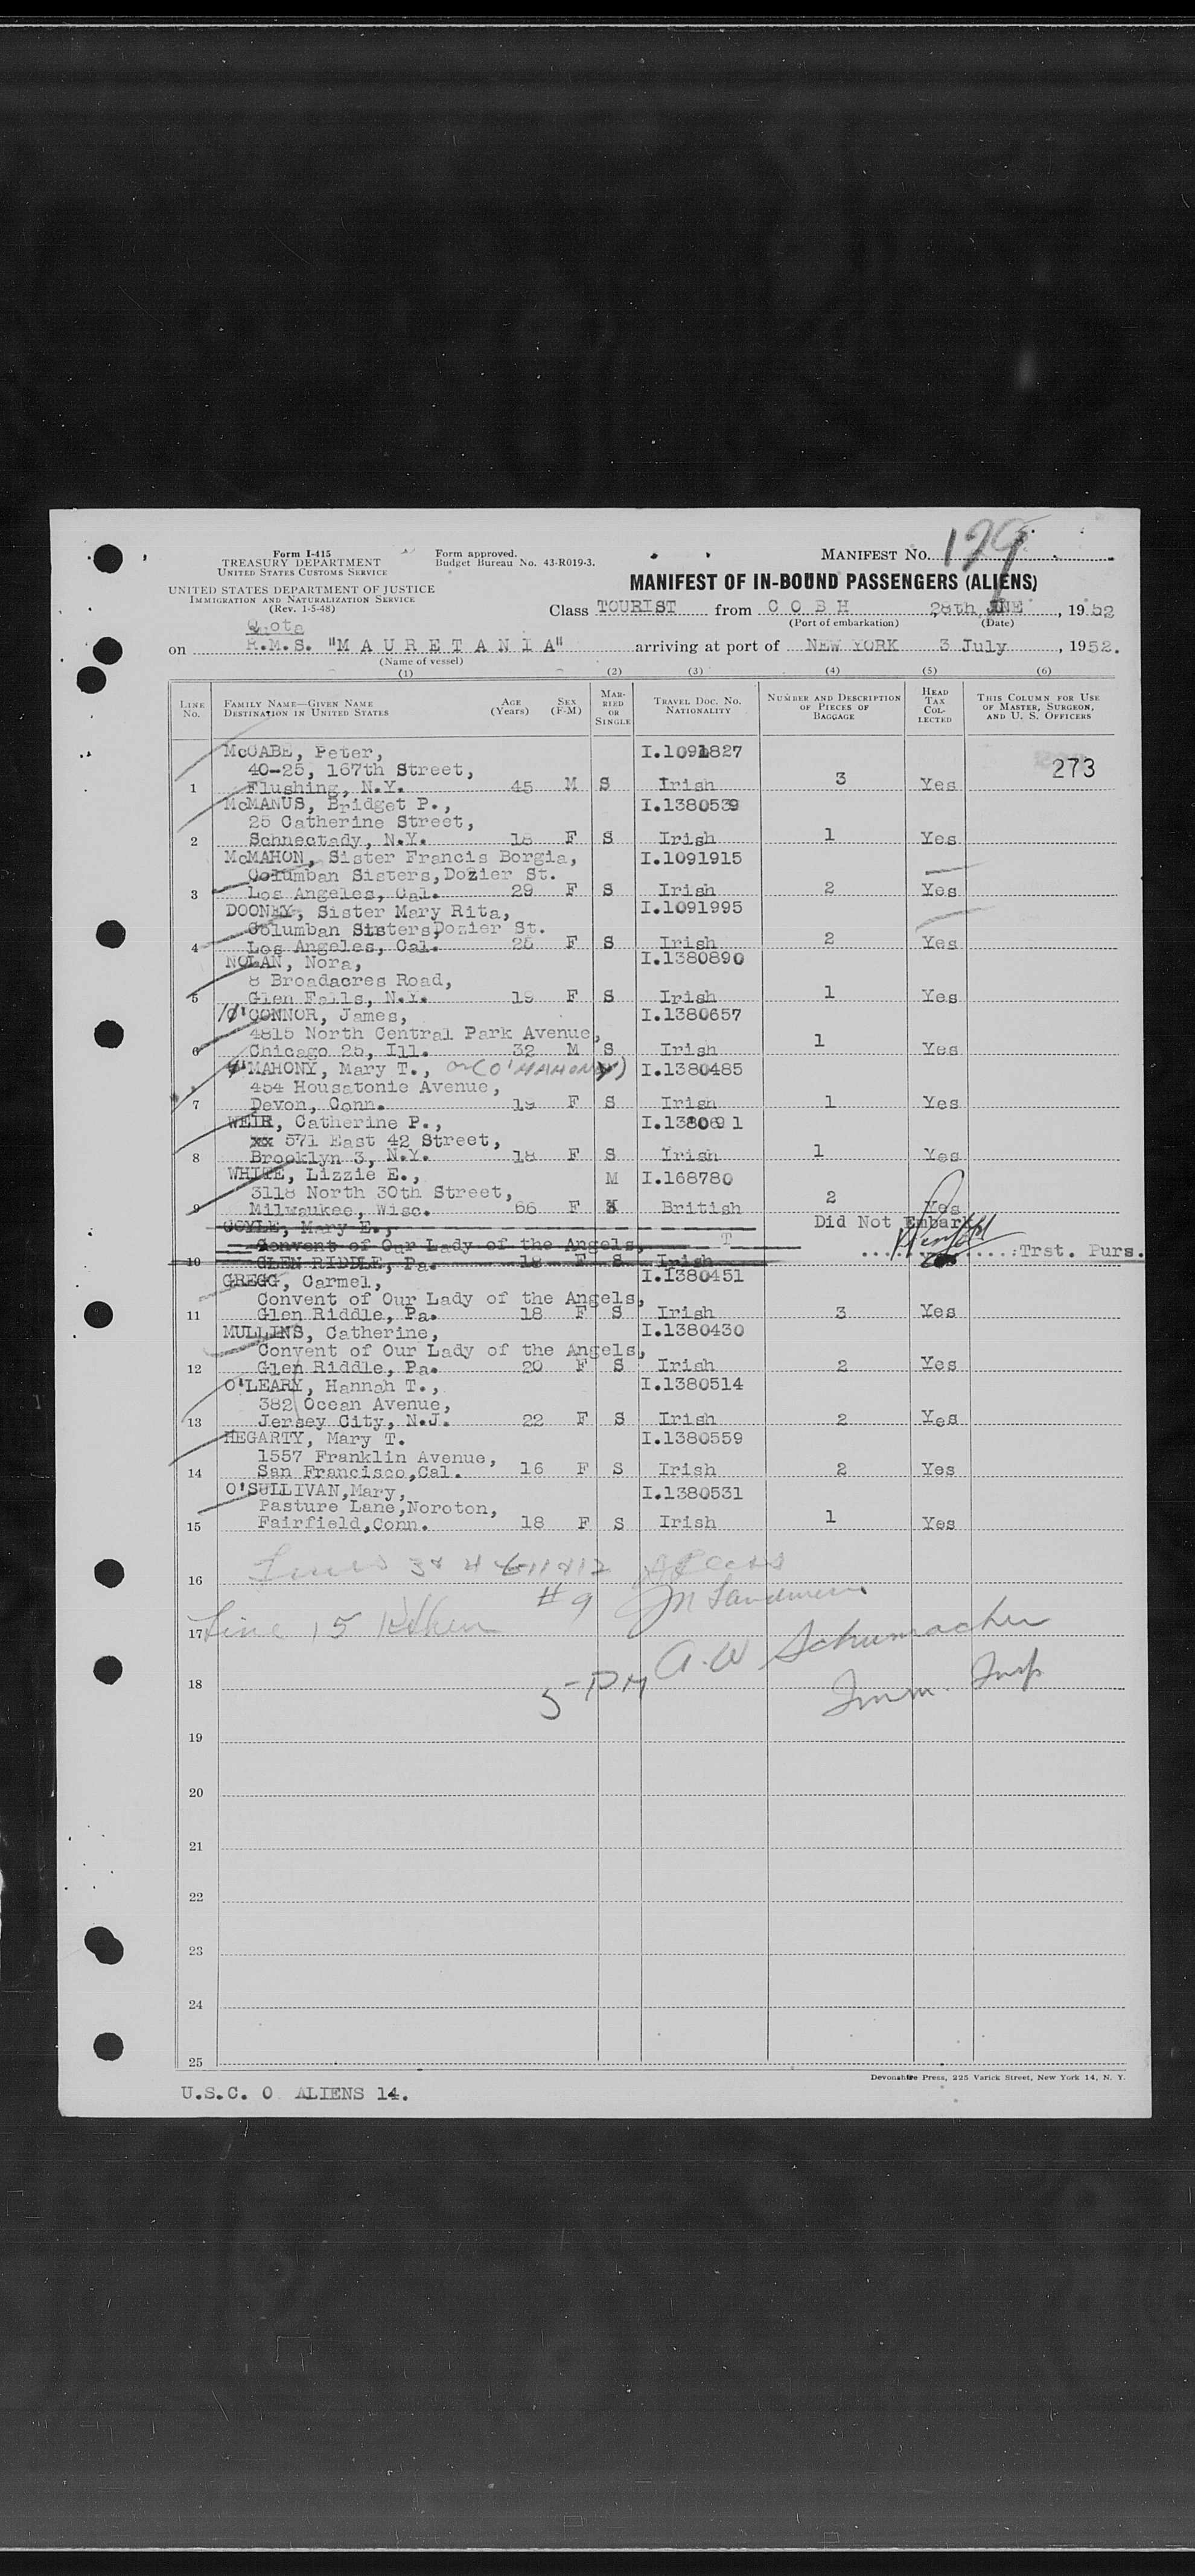 Form I-415
TREASURY DEPARTMENT
UNITED STATES CUSTOMS SERVICE
UNITED STATES DEPARTMENT OF JUSTICE
IMMIGRATION AND NATURALIZATION SERVICE
(Rev. 1-5-48)
Form approved.
Budget Bureau No. 43-R019-3.
MANIFEST NO. 129
MANIFEST OF IN-BOUND PASSENGERS (ALIENS)
Class TOURIST from C O B H 28th JUNE, 1952
(Port of embarkation) (Date)
Quota
on R.M.S. "M A U R E T A N I A" arriving at port of NEW YORK 3 July, 1952.
(Name of vessel)
(1) (2) (3) (4) (5) (6)
LINE NO. FAMILY NAME—GIVEN NAME DESTINATION IN UNITED STATES AGE (Years) SEX (F-M) MARRIED OR SINGLE TRAVEL DOC. NO. NATIONALITY NUMBER AND DESCRIPTION OF PIECES OF BAGGAGE HEAD TAX COLLECTED THIS COLUMN FOR USE OF MASTER, SURGEON, AND U. S. OFFICERS
McCABE, Peter, I.1091827
40-25, 167th Street, 273
1 Flushing, N.Y. 45 M S Irish 3 Yes
McMANUS, Bridget P., I.1380539
25 Catherine Street,
2 Schnectady, N.Y. 18 F S Irish 1 Yes
McMAHON, Sister Francis Borgia, I.1091915
Columban Sisters, Dozier St.
3 Los Angeles, Cal. 29 F S Irish 2 Yes
DOONEY, Sister Mary Rita, I.1091995
Columban Sisters, Dozier St.
4 Los Angeles, Cal. 25 F S Irish 2 Yes
NOLAN, Nora, I.1380890
8 Broadacres Road,
5 Glen Falls, N.Y. 19 F S Irish 1 Yes
O'CONNOR, James, I.1380657
4815 North Central Park Avenue,
6 Chicago 25, Ill. 32 M S Irish 1 Yes
O'MAHONY, Mary T., or (O'MAHONEY) I.1380485
454 Housatonic Avenue,
7 Devon, Conn. 19 F S Irish 1 Yes
WEIR, Catherine P., I.1380691
xx 571 East 42 Street,
8 Brooklyn 3, N.Y. 18 F S Irish 1 Yes
WHITE, Lizzie E., M I.168780
3118 North 30th Street,
9 Milwaukee, Wisc. 66 F British 2 Yes
COYLE, Mary E., Did Not Embark
Convent of Our Lady of the Angels, Trst. Purs.
10 GLEN RIDDLE, Pa. 18 F S Irish
GREGG, Carmel, I.1380451
Convent of Our Lady of the Angels,
11 Glen Riddle, Pa. 18 F S Irish 3 Yes
MULLINS, Catherine, I.1380430
Convent of Our Lady of the Angels,
12 Glen Riddle, Pa. 20 F S Irish 2 Yes
O'LEARY, Hannah T., I.1380514
382 Ocean Avenue,
13 Jersey City, N.J. 22 F S Irish 2 Yes
HEGARTY, Mary T. I.1380559
1557 Franklin Avenue,
14 San Francisco, Cal. 16 F S Irish 2 Yes
O'SULLIVAN, Mary, I.1380531
Pasture Lane, Noroton,
15 Fairfield, Conn. 18 F S Irish 1 Yes
16 Lines 3 & 4 11 & 12
#9
17 Line 15
A. W. Schumacher
18 5 PM Imm. Insp
19
20
21
22
23
24
25
Devonshire Press, 225 Varick Street, New York 14, N. Y.
U.S.C. 0 ALIENS 14.